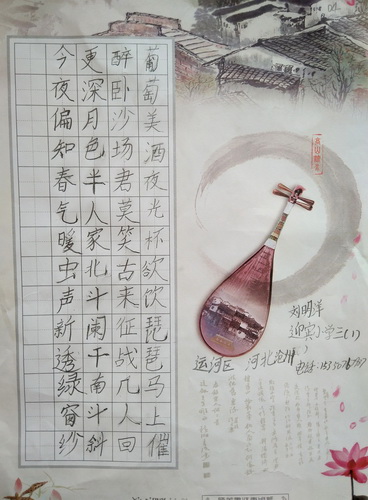 葡萄美酒夜光杯欲饮琵琶马上催
醉卧沙场君莫笑古来征战几人回
更深月色半人家北斗阑干南斗斜
今夜偏知春气暖虫声新透绿窗纱
刘明洋
迎宾小学
运河区 河北沧州
电话: